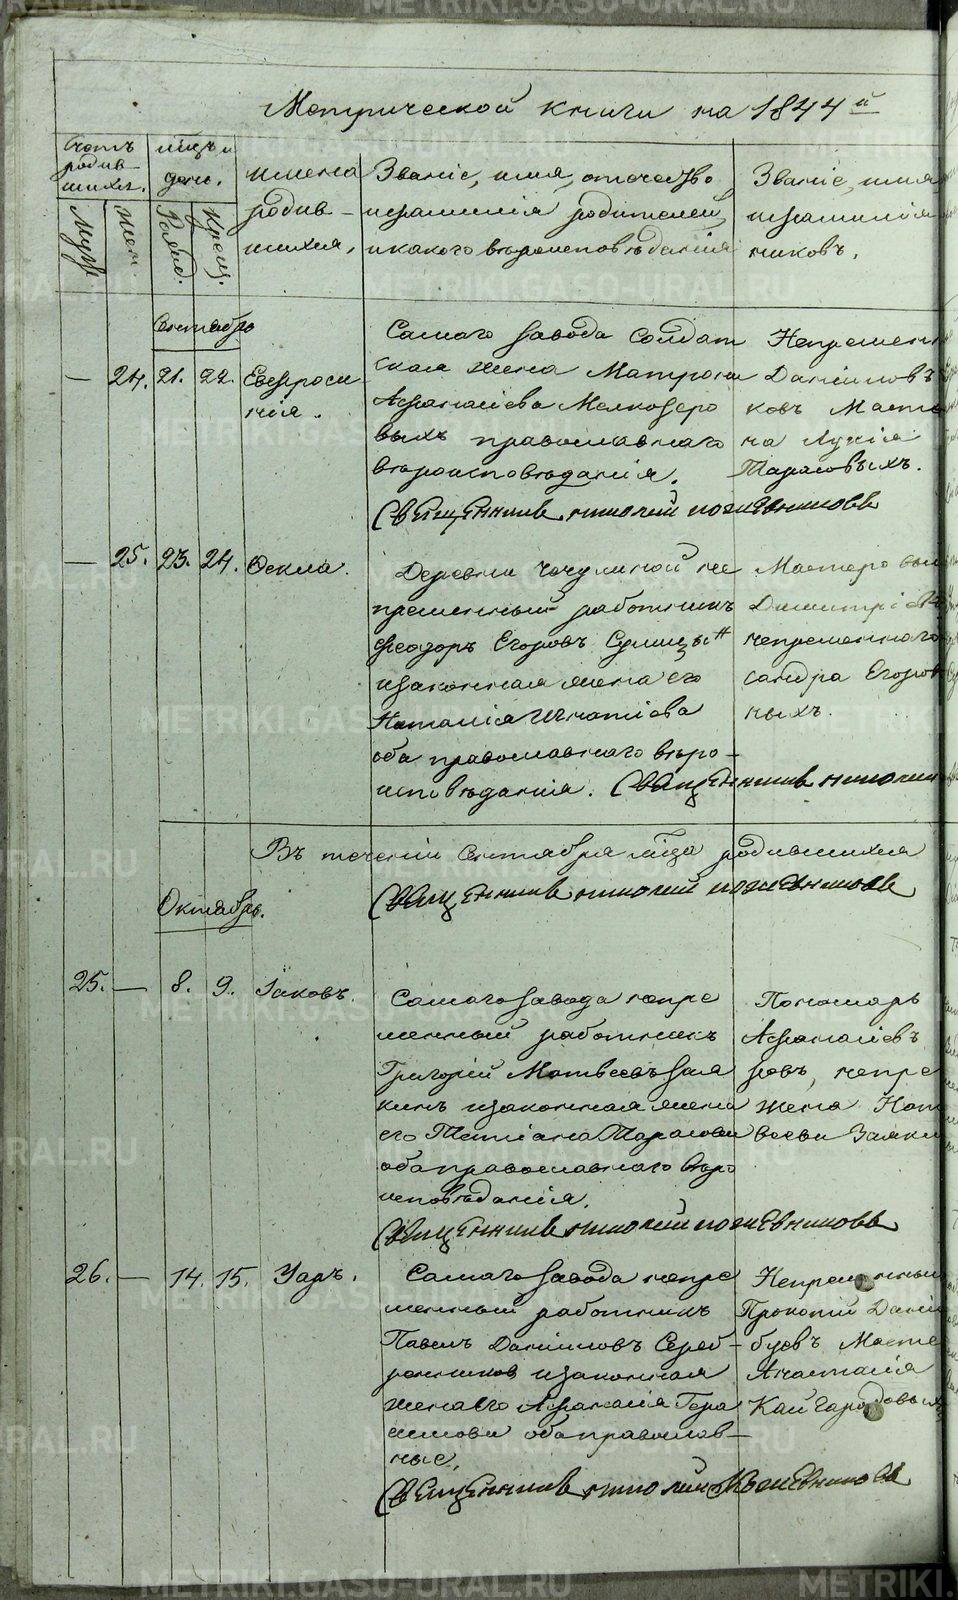 Метрической книги на 1844й
Счетъ родив-шихся.
мцъ и день.
Муж
Жен
Рожд.
Крещ.
имена родив-шихся.
Званіе, имя, отчество
и фамилія родителей,
и какого вѣроисповѣданія
Званіе, имя
и фамилія
никовъ.
Сентябрь
— 24. 21. 22. Евфроси
нія.
Самаго завода Солдат
ская жена Матрона
Афанасіева Мелкозеро
выхъ православнаго
вѣроисповѣданія.
Священникъ Николай
Непремен
Даніиловъ
ковъ Масте
на Лукія
Тарасовыхъ.
— 25. 23. 24. Фекла.
Деревни не
пременный работникъ
Феодоръ Егоровъ
и законная жена его
Наталія Игнатіева
оба православнаго вѣро-
исповѣданія. Священникъ Николай
Мастеро
Димитрі
непременнаго
сандра Егоров
ныхъ.
Въ теченіи Сентября мца родившихся
Священникъ Николай
Октябрь.
25. — 8. 9. Іаковъ.
Самаго завода непре
менный работникъ
Григорій Матвеевъ Зая
кинъ и законная жена
его Татіана Тарасова
оба православнаго вѣро
исповѣданія.
Священникъ Николай
Пономарь
Афанасіевъ
ровъ, непре
жена Нат
веева Заяки
26. — 14. 15. Уаръ.
Самаго завода непре
менный работникъ
Павелъ Даніиловъ Сереб-
ренников и законная
жена его Афанасія Гера
симова оба православ-
ные.
Священникъ Николай
Непременный
Прокопій Даніи
буевъ Масте
Анастасія
Кайгородовыхъ
METRIKI.GASU-URAL.RU